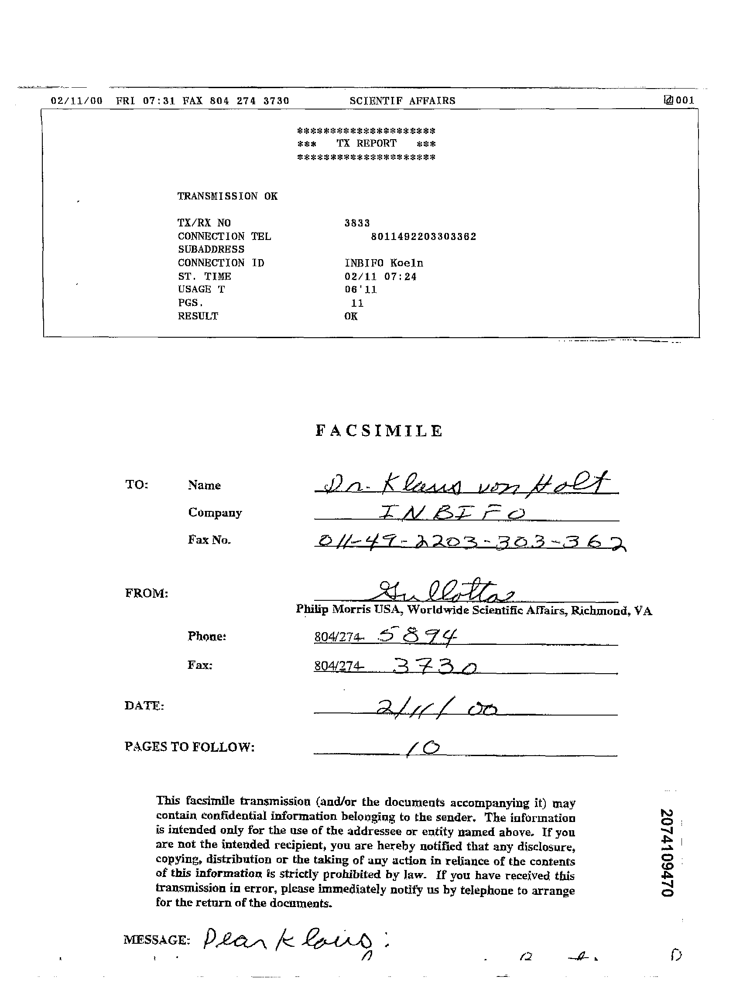 02/11/00 FRI 07:31 FAX 804 274 3730 SCIENTIF AFFAIRS 001
*********************
*** TX REPORT ***
*********************
TRANSMISSION OK
TX/RX NO 3833
CONNECTION TEL 8011492203303362
SUBADDRESS
CONNECTION ID INBIFO Koeln
ST. TIME 02/11 07:24
USAGE T 06'11
PGS. 11
RESULT OK
FACSIMILE
TO: Name Dr. Klaus von Holt
Company INBIFO
Fax No. 011-49-2203-303-362
FROM: Gullotta
Philip Morris USA, Worldwide Scientific Affairs, Richmond, VA
Phone: 804/274- 5894
Fax: 804/274- 3730
DATE: 2/11/00
PAGES TO FOLLOW: 10
This facsimile transmission (and/or the documents accompanying it) may
contain confidential information belonging to the sender. The information
is intended only for the use of the addressee or entity named above. If you
are not the intended recipient, you are hereby notified that any disclosure,
copying, distribution or the taking of any action in reliance of the contents
of this information is strictly prohibited by law. If you have received this
transmission in error, please immediately notify us by telephone to arrange
for the return of the documents.
2074109470
MESSAGE: Dear Klaus: